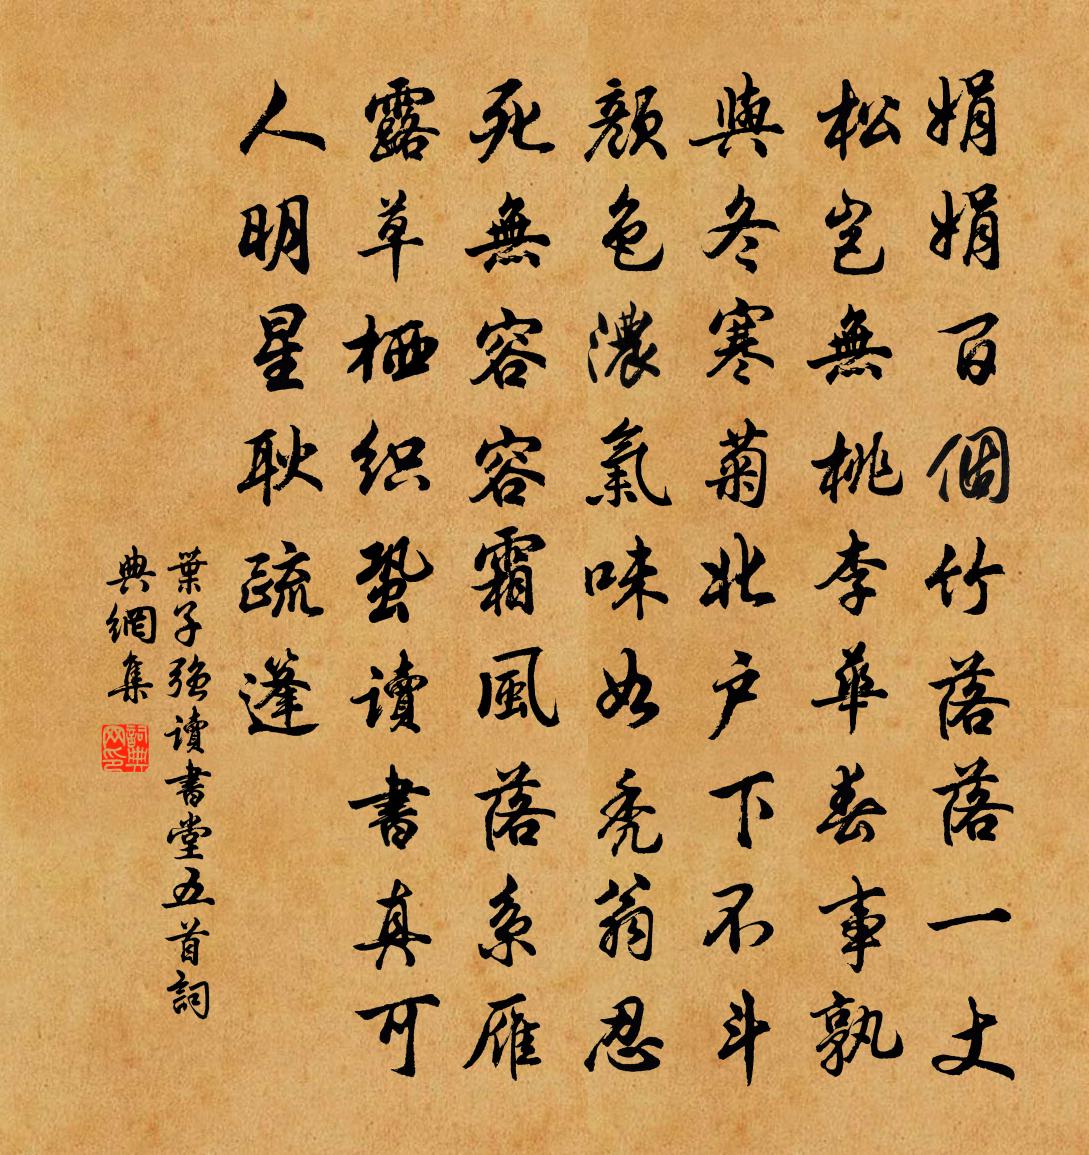 娟娟百個竹落落一丈
松豈無桃李華春事孰
與冬寒菊北戶下不斗
顏色濃氣味如禿翁忍
死無容容霜風落系雁
露草栖织蛩讀書真可
人明星耿疏蓬
葉子强讀書堂五首詞
典網集
詞典網印